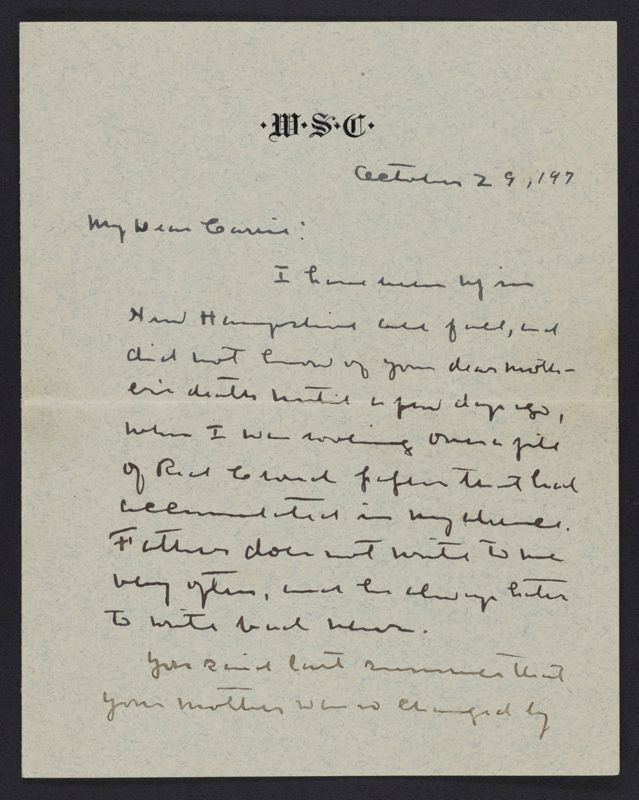 ·W·S·C·
October 29, 197
My Dear Carrie:
I have been up in
New Hampshire all fall, and
did not know of your dear moth-
er's death until a few days ago,
when I was looking over a pile
of Red Cloud papers that had
accumulated in my absence.
Father does not write to me
very often, and he always hates
to write bad news.
You said last summer that
your mother was so changed by